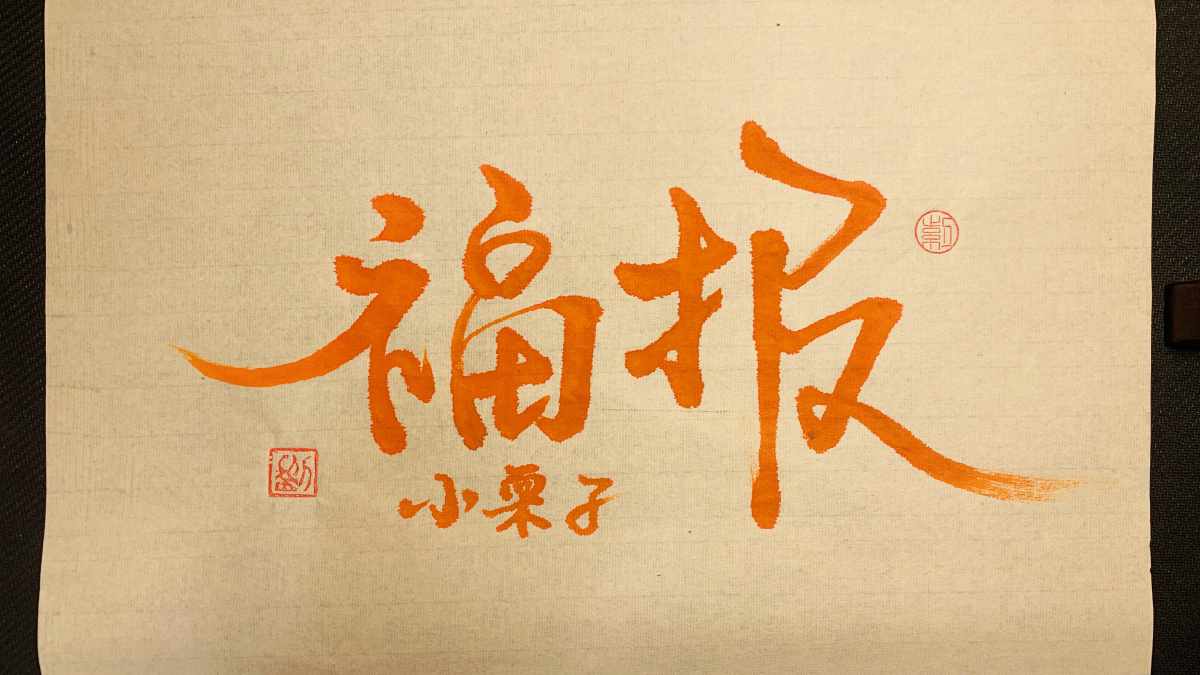 福报
小栗子